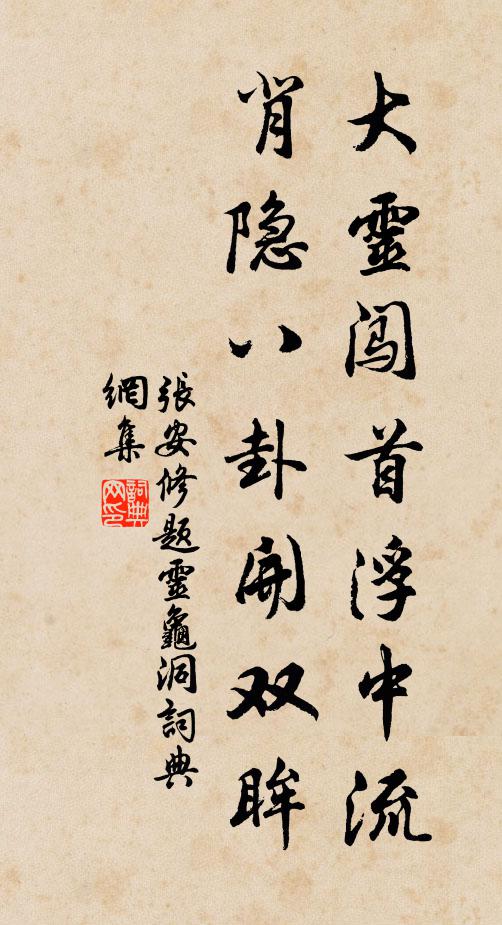 大靈闯首浮中流
背隐八卦開双眸
張安修題靈龜洞詞典
網集
詞典
网印